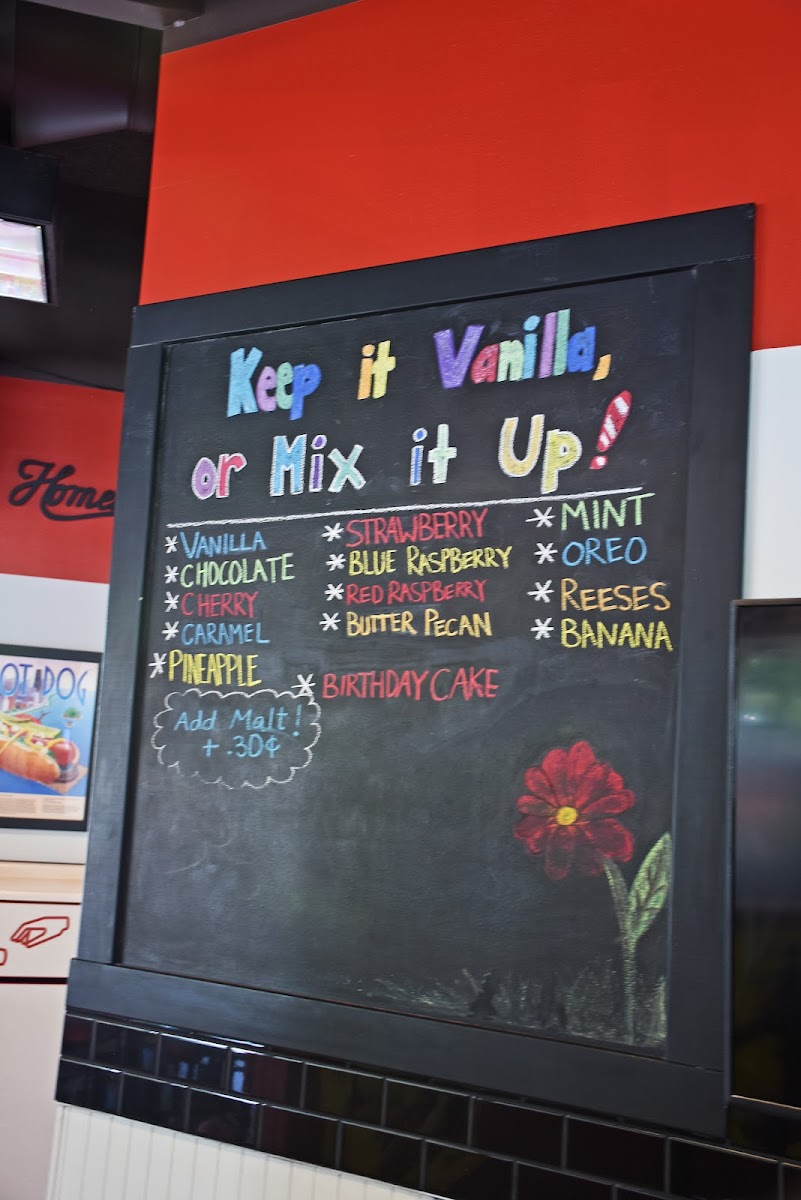 Keep it Vanilla,
or Mix it Up!
*VANILLA
*CHOCOLATE
*CHERRY
*CARAMEL
*PINEAPPLE
*STRAWBERRY
*BLUE RASPBERRY
*RED RASPBERRY
*BUTTER PECAN
*BIRTHDAY CAKE
*MINT
*OREO
*REESES
*BANANA
Add Malt!
+ .30¢
Home
OT DOG